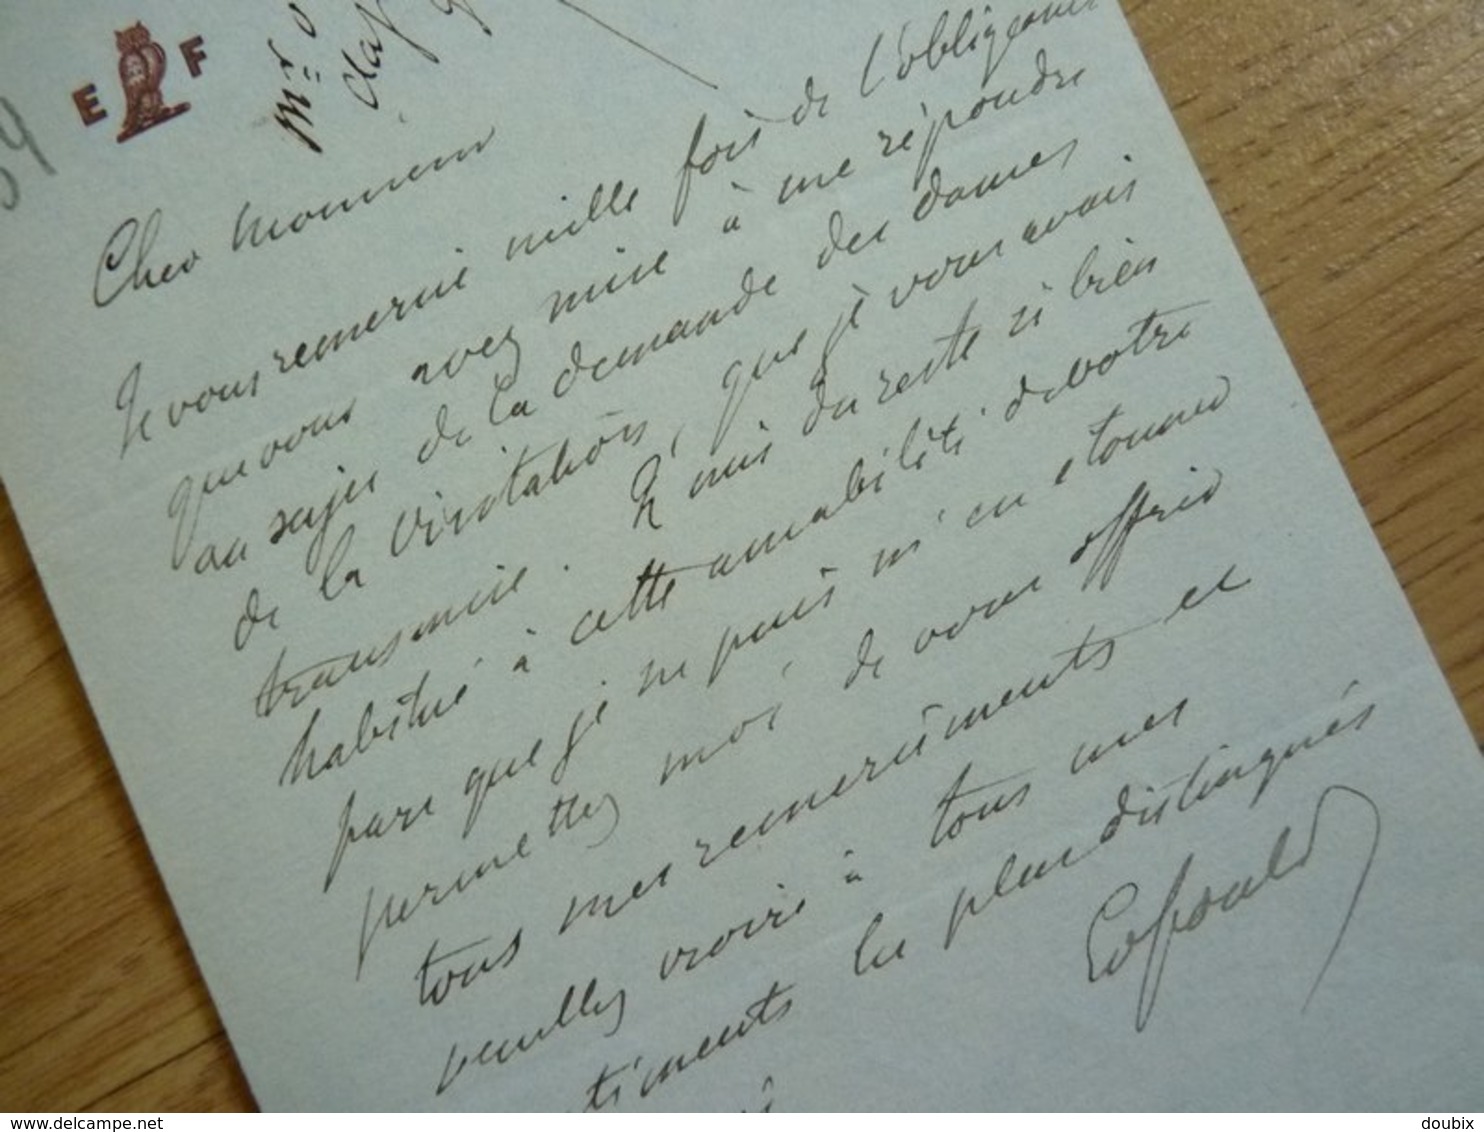 E F
Mr
Cher Monsieur
Je vous remercie mille fois de l'obligeance
que vous avez mise à me répondre
au sujet de la demande des dames
de la visitation, que je vous avais
transmise. Je suis du reste si bien
habitué à cette amabilité de votre
part que je ne puis m'en etonner
permettez moi de vous offrir
tous mes remerciments et
veuillez croire à tous mes
timents les plus distingués
delcampe.net
doubix